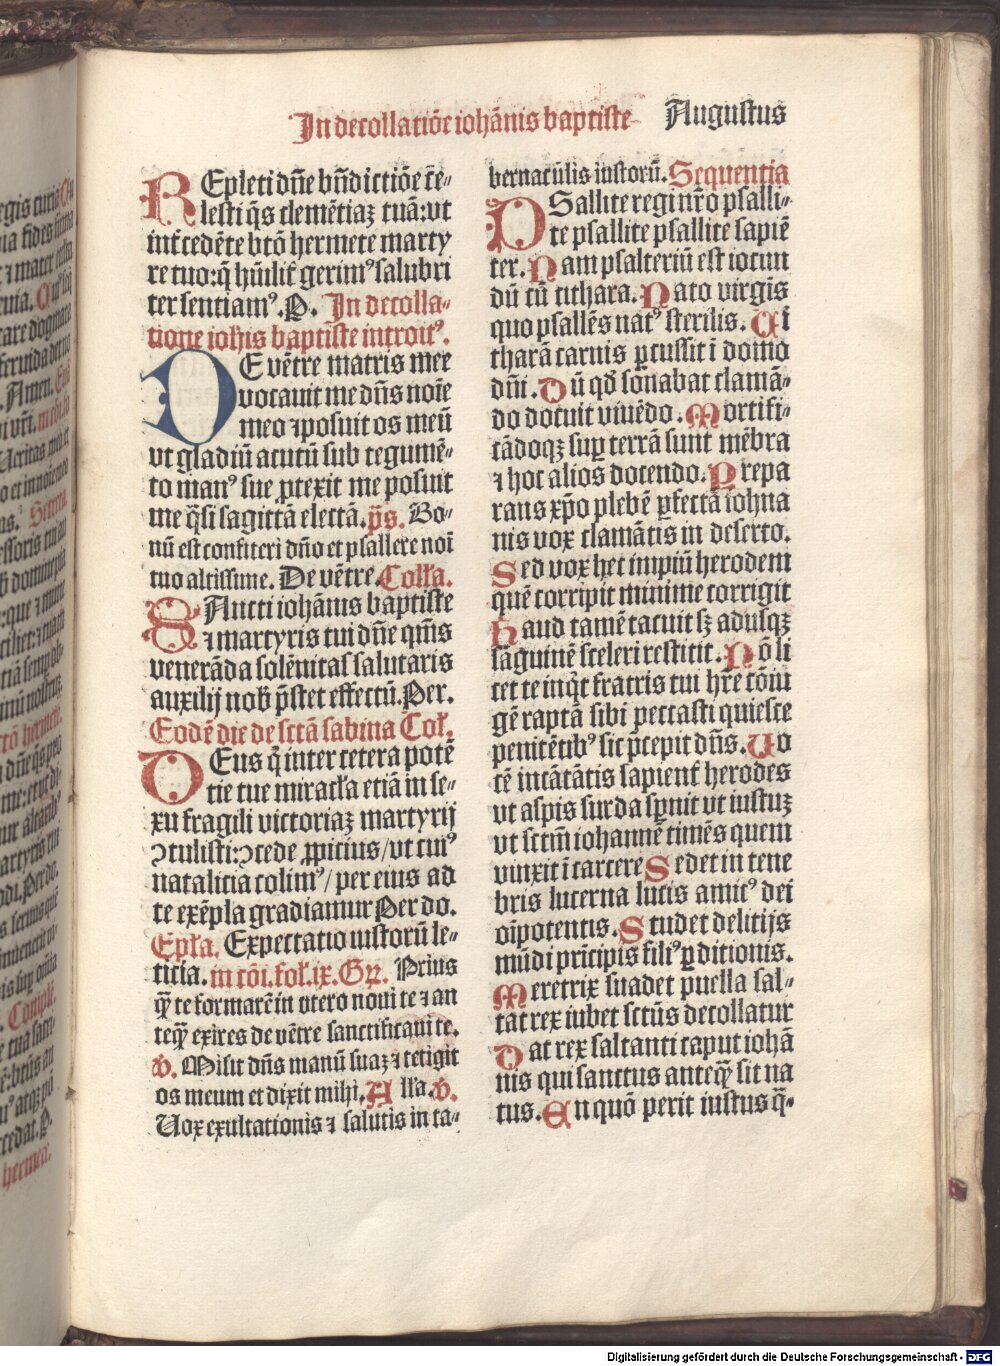 In decollatiōe iohānis baptiste Augustus
Repleti dn̄e bn̄dictiōe ce̅-
lesti q̄s clemētiaꝫ tuā: vt
intꝰcedēte btō hermete marty
re tuo: q̄ hūilit̄ gerimꝰ salubri
ter sentiamꝰ. P. In decolla-
tione ioh̄is baptiste introitꝰ.
DE vētre matris mee
vocauit me dn̄s noīe
meo ⁊ posuit os meū
vt gladiū acutū sub tegumē-
to manꝰ sue ꝓtexit me posuit
me q̄si sagittā electā. p̄s. Bo-
nū est confiteri dn̄o et psallere noī
tuo altissime. De vētre. Coll̄a.
SAncti iohānis baptiste
⁊ martyris tui dn̄e qm̄s
venerāda solēnitas salutaris
auxilij nob̄ p̄stet effectū. Per.
Eodē die de sctā sabina Col̄.
DEus q̇ inter cetera potē
tie tue miracl̄a etiā in se-
xu fragili victoriaꝫ martyrij
ꝯtulisti: ꝯcede ꝓpicius/vt cuiꝰ
natalicia colimꝰ/per eius ad
te exēpla gradiamur Per do.
Ep̄la. Expectatio iustorū le-
ticia. in cōi. fol̄. ix. Gꝛ. Prius
ꝙ̄ te formarē in vtero noui te ⁊ an
teꝙ̄ exires de vētre sanctificaui te.
V. Misit dn̄s manū suaꝫ ⁊ tetigit
os meum et dixit mihi. All̄a. V.
Vox exultationis ⁊ salutis in ta-
bernacūlis iustorū. Sequentia
PSallite regi nr̄o psalli-
te psallite psallite sapiē
ter. Nam psalteriū est iocun
dū cū cithara. Nato virgīs
quo psallēs natꝰ sterilis. Ci
tharā carnis ꝑcussit ī domo
dn̄i. Dū qd̄ sonabat clamā-
do docuit viuēdo. Mortifi-
cādoqꝫ suꝑ terrā sunt mēbra
⁊ hoc alios docendo. Prepa
rans xp̄o plebē ꝑfectā iohna
nis vox clamātis in deserto.
Sed vox hec impiū herodem
quē corripit minime corrigit
Haud tamē tacuit sꝫ adusqꝫ
sāguinē sceleri restitit. Nō li
cet te inq̇t fratris tui hr̄e cōiu
gē raptā sibi peccasti quiesce
penitētibꝰ sic p̄cepit dn̄s. Vo
cē incātātis sapient̄ herodes
vt aspis surda sꝑnit vt iustuꝫ
vt sctm̄ iohannē timēs quem
vinxit ī carcere Sedet in tene
bris lucerna lucis amicꝰ dei
oīpotentis. Studet delitijs
mūdi prīcipis filiꝰ ꝑditionis.
Meretrix suadet puella sal-
tat rex iubet sctūs decollatur
Dat rex saltanti caput iohā
nis qui sanctus anteꝙ̄ sit na
tus. En quō perit iustus q̄-
Digitalisierung gefördert durch die Deutsche Forschungsgemeinschaft - DFG